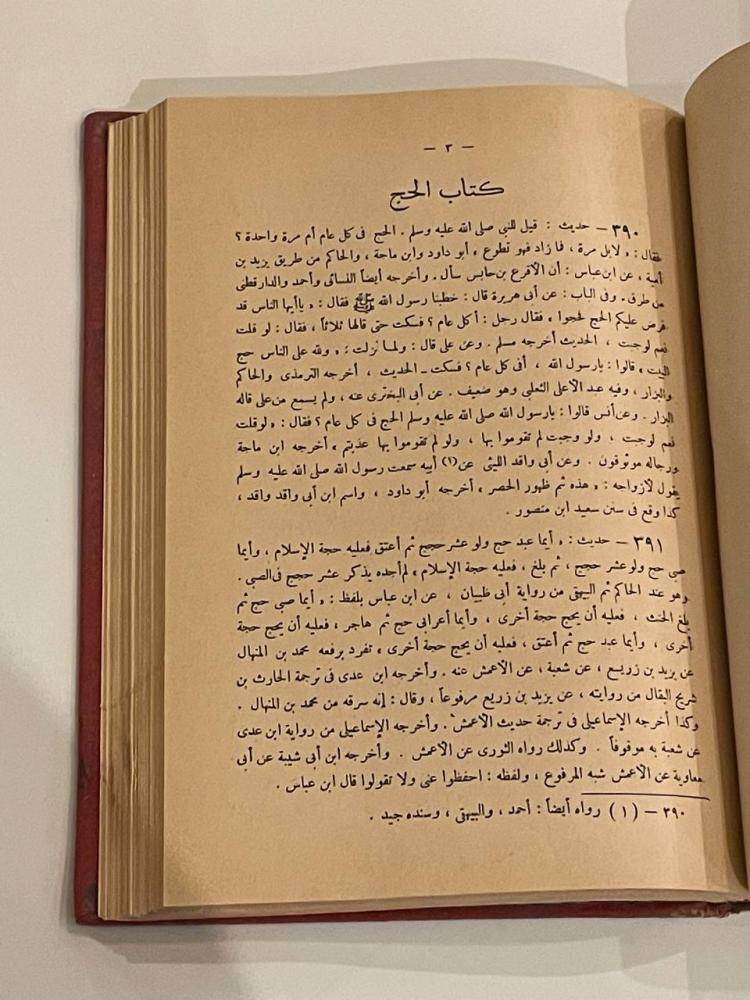 — ٣ —
كتاب الحج
٣٩٠ — حديث : قيل للنبي صلى الله عليه وسلم . الحج فى كل عام أم مرة واحدة ؟
فقال : « لا بل مرة ، فما زاد فهو تطوع » أبو داود وابن ماجة ، والحاكم من طريق يزيد بن
أمية ، عن ابن عباس : أن الأقرع بن حابس سأل . وأخرجه أيضاً النسائى وأحمد والدارقطنى
من طرق . وفى الباب : عن أبى هريرة قال : خطبنا رسول الله ﷺ فقال : « ياأيها الناس قد
فرض عليكم الحج فحجوا » فقال رجل : أكل عام ؟ فسكت حتى قالها ثلاثاً ، فقال : لو قلت
نعم لوجبت ، الحديث أخرجه مسلم . وعن على قال : ولما نزلت : « ولله على الناس حج
البيت » قالوا : يارسول الله ، أفى كل عام ؟ فسكت ــ الحديث ، أخرجه الترمذى والحاكم
والبزار ، وفيه عبد الأعلى الثعلبى وهو ضعيف . عن أبى البخترى عنه ، ولم يسمع من على قاله
البزار . وعن أنس قالوا : يارسول الله صلى الله عليه وسلم الحج فى كل عام ؟ فقال : « لو قلت
نعم لوجبت ، ولو وجبت لم تقوموا بها ، ولو لم تقوموا بها عذبتم » أخرجه ابن ماجة
ورجاله موثوقون . وعن أبى واقد الليثى عن (١) أبيه سمعت رسول الله صلى الله عليه وسلم
يقول لأزواجه : « هذه ثم ظهور الحصر » أخرجه أبو داود ، واسم ابن أبى واقد واقد ،
كذا وقع فى سنن سعيد ابن منصور .
٣٩١ — حديث : « أيما عبد حج ولو عشر حجج ثم أعتق فعليه حجة الإسلام ، وأيما
صبى حج ولو عشر حجج ، ثم بلغ ، فعليه حجة الإسلام » لم أجده يذكر عشر حجج فى الصبى .
وهو عند الحاكم ثم البيهقى من رواية أبى ظبيان ، عن ابن عباس بلفظ : « أيما صبى حج ثم
بلغ الحنث ، فعليه أن يحج حجة أخرى ، وأيما أعرابى حج ثم هاجر ، فعليه أن يحج حجة
أخرى ، وأيما عبد حج ثم أعتق ، فعليه أن يحج حجة أخرى » تفرد برفعه محمد بن المنهال
عن يزيد بن زريع ، عن شعبة ، عن الأعمش عنه . وأخرجه ابن عدى فى ترجمة الحارث بن
شريح البقال من روايته ، عن يزيد بن زريع مرفوعاً ، وقال : إنه سرقه من محمد بن المنهال .
وكذا أخرجه الإسماعيلى فى ترجمة حديث الأعمش . وأخرجه الإسماعيلى من رواية ابن عدى
عن شعبة به موقوفاً . وكذلك رواه الثورى عن الأعمش . وأخرجه ابن أبى شيبة عن أبى
معاوية عن الأعمش شبه المرفوع ، ولفظه : احفظوا عنى ولا تقولوا قال ابن عباس .
٣٩٠ — (١) رواه أيضاً : أحمد ، والبيهقى ، وسنده جيد .